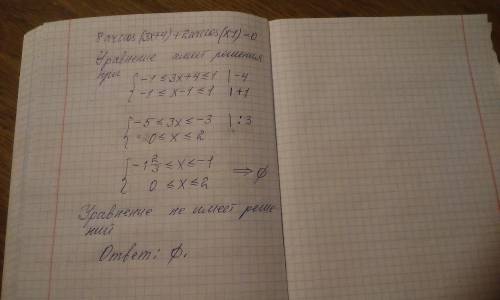 8 arccos(3x+4)+2arccos(x-1)=0
Уравнение имеет решения
при { -1 ≤ 3x+4 ≤ 1 | -4
{ -1 ≤ x-1 ≤ 1 | +1
{ -5 ≤ 3x ≤ -3 | :3
0 ≤ x ≤ 2
{ -1 2/3 ≤ x ≤ -1
0 ≤ x ≤ 2 ⇒ ∅
Уравнение не имеет реше-
ний
Ответ: ∅.